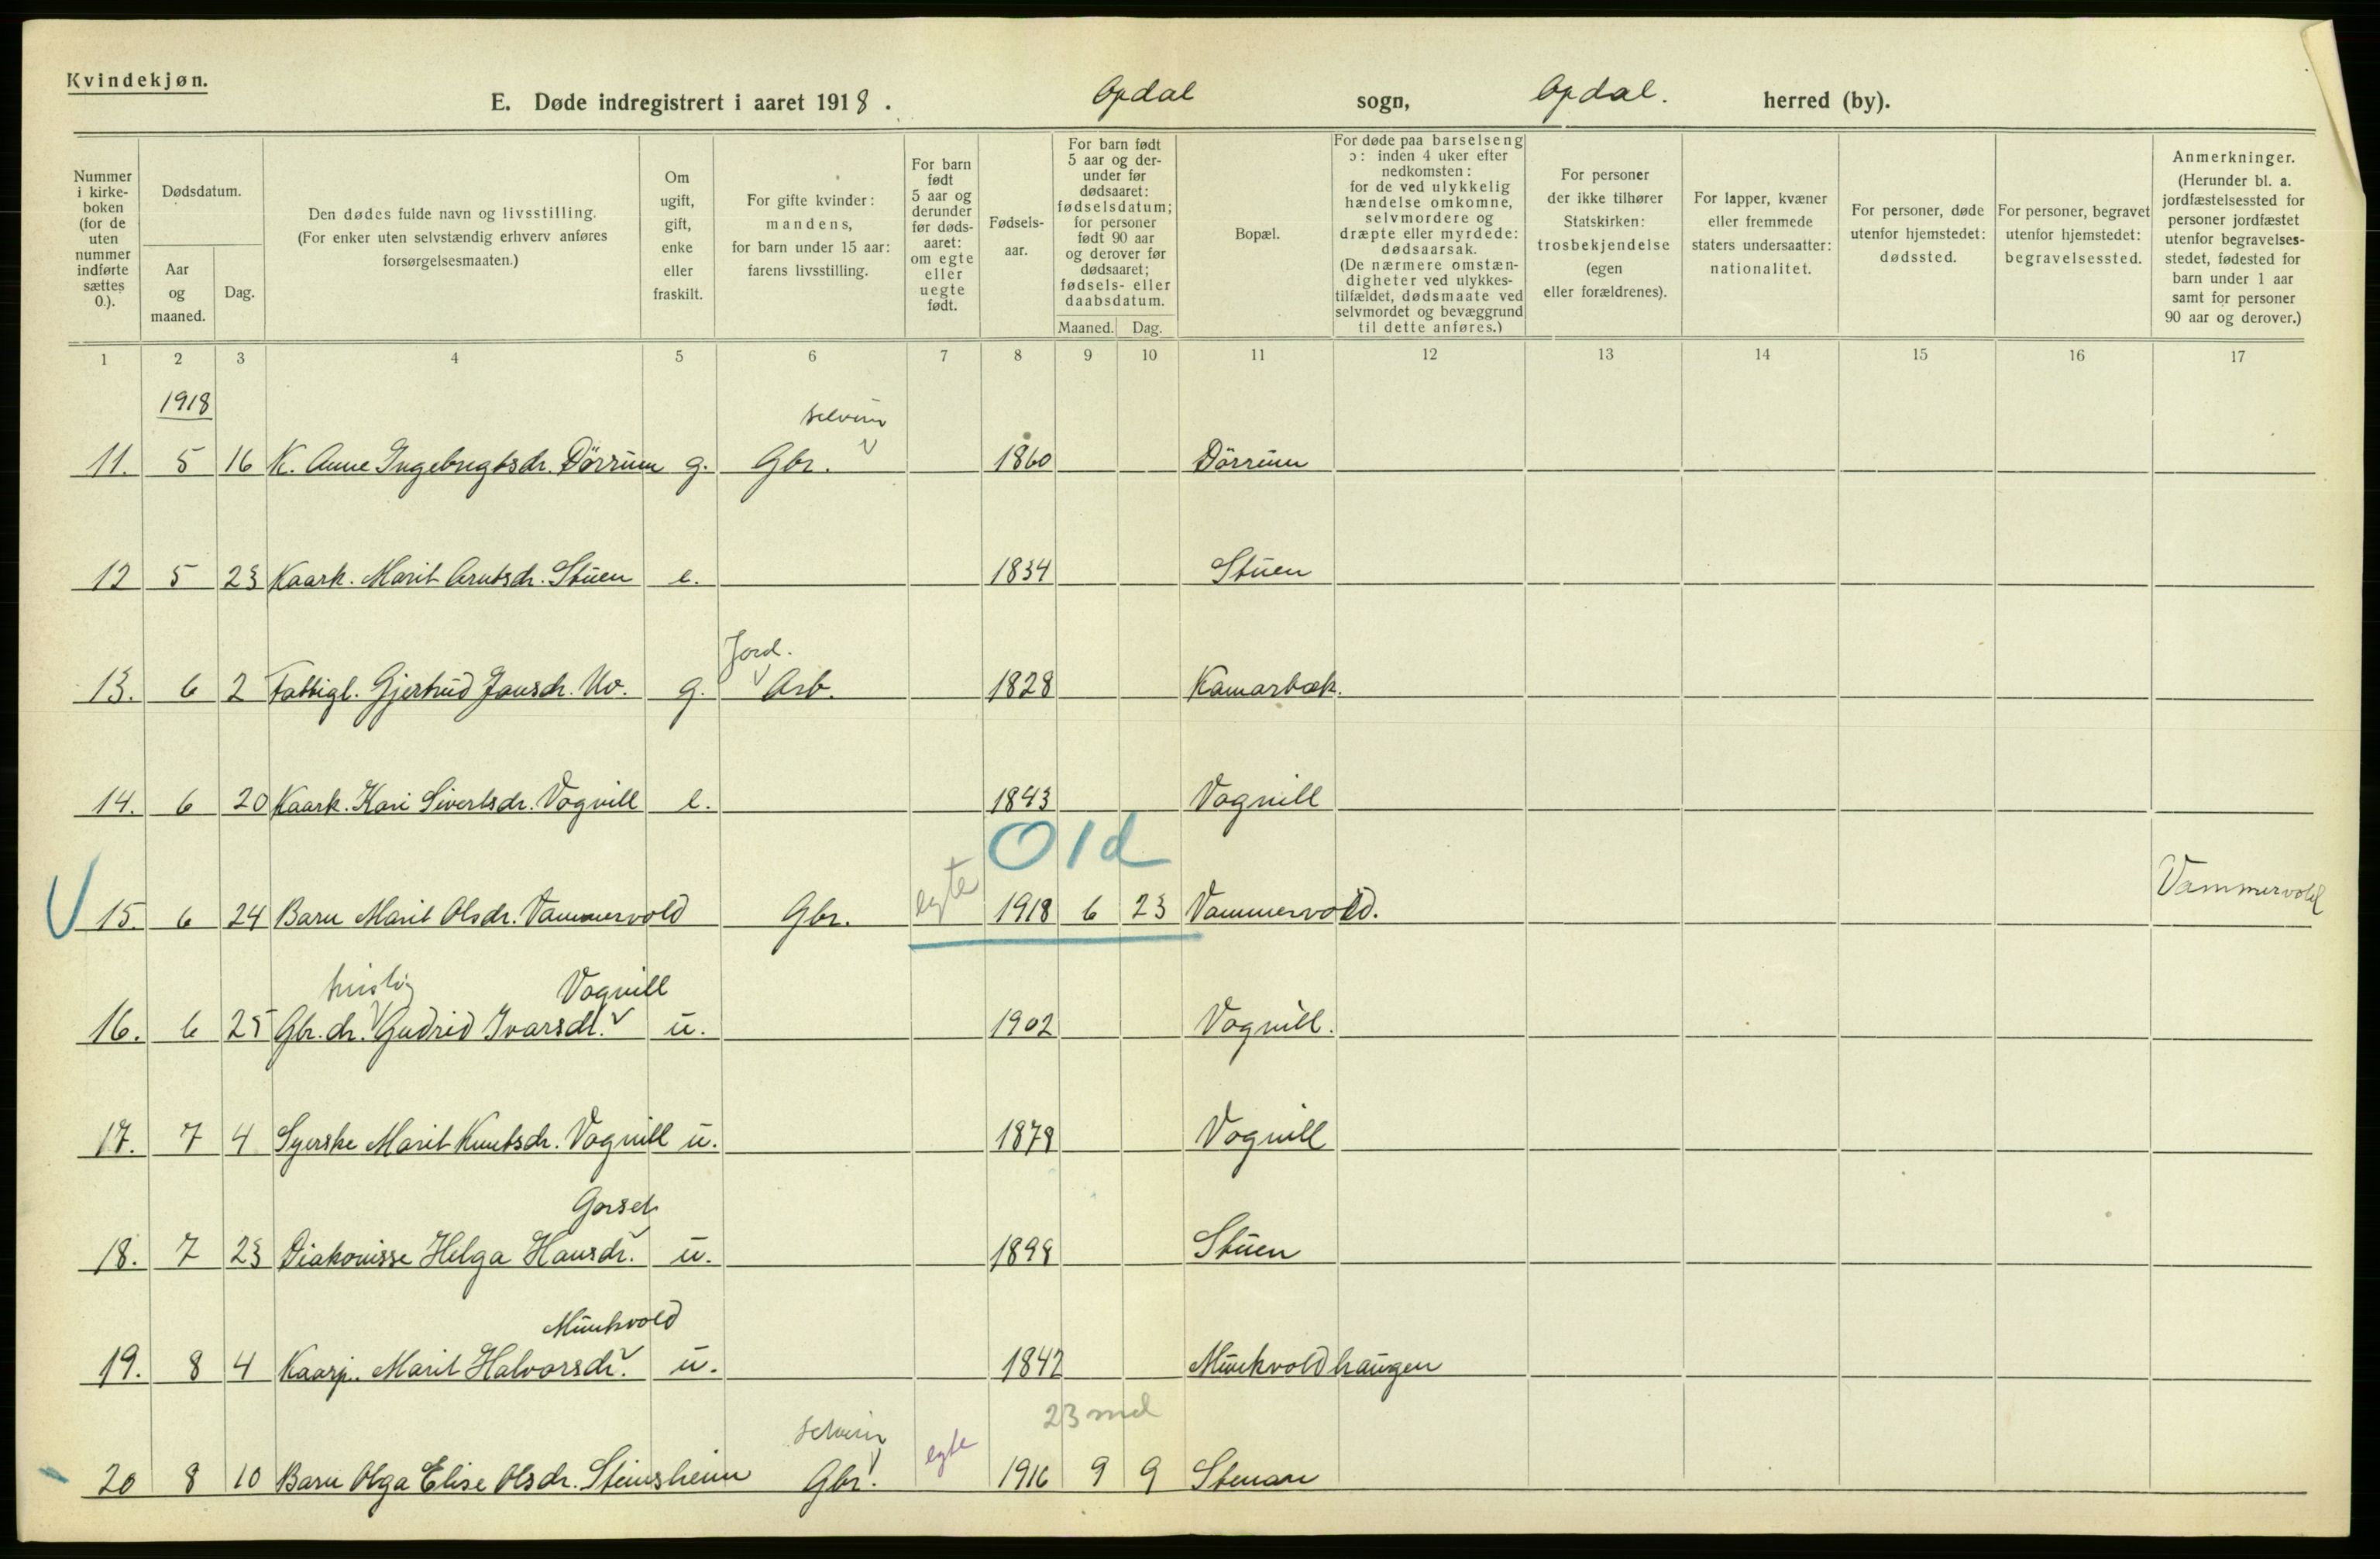 Kvindekjøn.
E. Døde indregistrert i aaret 1918. Opdal sogn, Opdal. herred (by).
Nummer i kirke- boken (for de uten nummer indførte sættes 0.).
Dødsdatum.
Aar og maaned.
Dag.
Den dødes fulde navn og livsstilling. (For enker uten selvstændig erhverv anføres forsørgelsesmaaten.)
Om ugift, gift, enke eller fraskilt.
For gifte kvinder: mandens, for barn under 15 aar: farens livsstilling.
For barn født 5 aar og derunder før døds- aaret: om egte eller uegte født.
Fødsels- aar.
For barn født 5 aar og der- under før dødsaaret: fødselsdatum; for personer født 90 aar og derover før dødsaaret; fødsels- eller daabsdatum.
Maaned. Dag.
Bopæl.
For døde paa barselseng ɔ: inden 4 uker efter nedkomsten: for de ved ulykkelig hændelse omkomne, selvmordere og dræpte eller myrdede: dødsaarsak. (De nærmere omstæn- digheter ved ulykkes- tilfældet, dødsmaate ved selvmordet og bevæggrund til dette anføres.)
For personer der ikke tilhører Statskirken: trosbekjendelse (egen eller forældrenes).
For lapper, kvæner eller fremmede staters undersaatter: nationalitet.
For personer, døde utenfor hjemstedet: dødssted.
For personer, begravet utenfor hjemstedet: begravelsessted.
Anmerkninger. (Herunder bl. a. jordfæstelsessted for personer jordfæstet utenfor begravelses- stedet, fødested for barn under 1 aar samt for personer 90 aar og derover.)
1 2 3 4 5 6 7 8 9 10 11 12 13 14 15 16 17
1918
selveier
11. 5 16 K. Anne Ingebrigtsdr. Dörrum g. Gbr. 1860 Dörrum
12 5 23 Kaark. Marit Arntsdr. Stuen e. 1834 Stuen
Jord.
13. 6 2 Fattigl. Gjertrud Jonsdr. Uv. g. Arb. 1828 Kamarbæk.
14. 6 20 Kaark. Kari Sivertsdr. Vognill e. 1843 Vognill
01d
15. 6 24 Barn Marit Olsdr. Vammervold Gbr. egte 1918 6 23 Vammervold. Vammervold
huslig Vognill
16. 6 25 Gbr. dr. Gudrid Ivarsdr. u. 1902 Vognill.
17. 7 4 Syerske Marit Knutsdr. Vognill u. 1879 Vognill
Gorset
18. 7 23 Diakonisse Helga Hansdr. u. 1898 Stuen
Munkvold
19. 8 4 Kaarp. Marit Halvorsdr. u. 1842 Munkvoldhaugen
selveier 23 md
20 8 10 Barn Olga Elise Olsdr. Steinsheim Gbr. egte 1916 9 9 Stenan